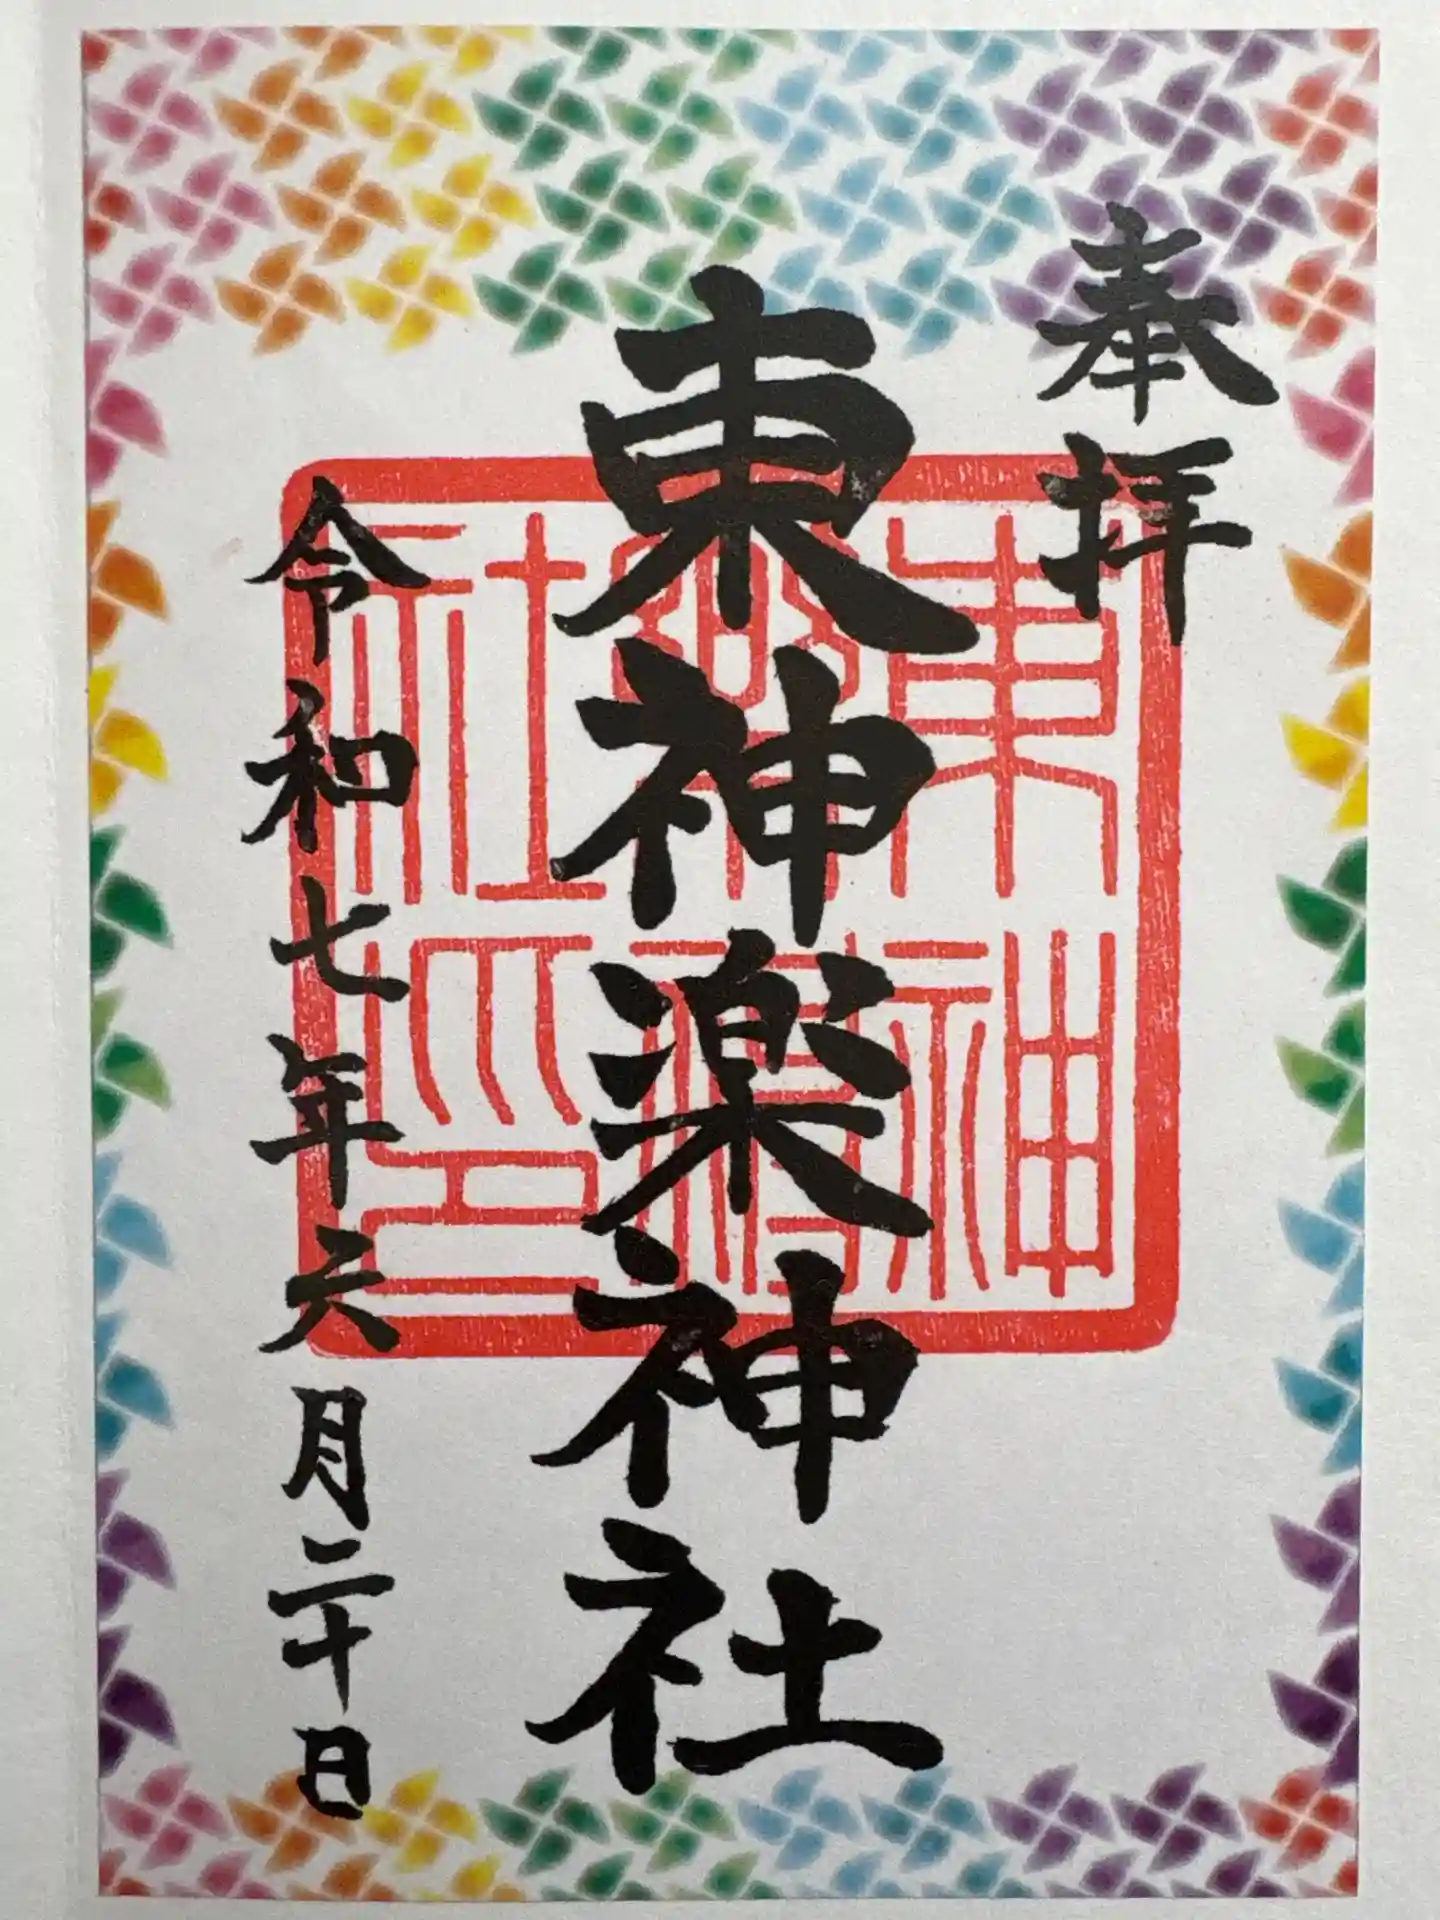 奉拝
東神楽神社
令和七年六月二十日
東神
楽神
社印